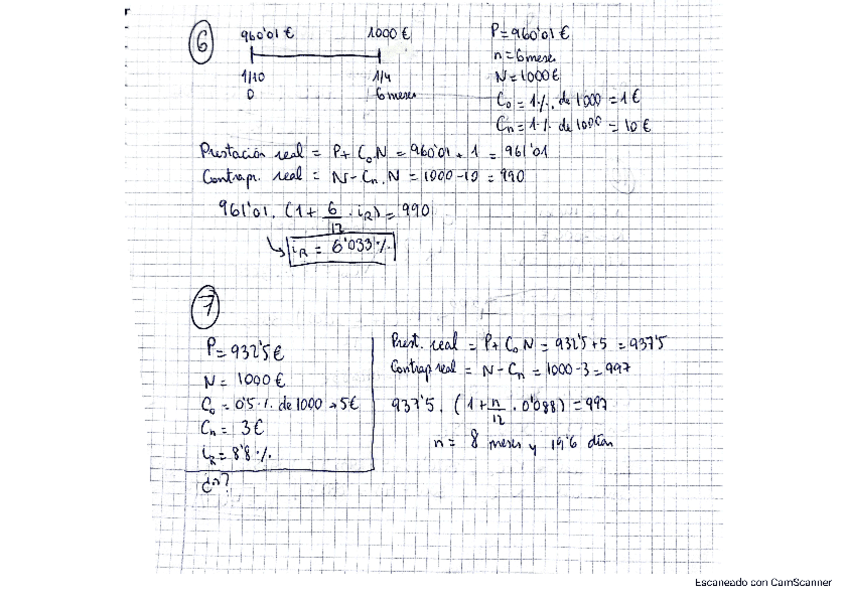 r
6
960'01 € 1000 €
1/10 1/4
0 6 meses
P = 960'01 €
n = 6 meses
N = 1000 €
C₀ = 1‰ de 1000 = 1 €
Cn = 1% de 1000 = 10 €
Prestación real = P + C₀N = 960'01 + 1 = 961'01
Contrap. real = N - Cn.N = 1000 - 10 = 990
961'01 . (1 + 6/12 . iR) = 990
iR = 6'033 %
7
P = 932'5 €
N = 1000 €
C₀ = 0'5 % de 1000 → 5 €
Cn = 3 €
iR = 8'8 %
¿n?
Prest. real = P + C₀N = 932'5 + 5 = 937'5
Contrap real = N - Cn = 1000 - 3 = 997
937'5 . (1 + n/12 . 0'088) = 997
n = 8 meses y 19'6 días
Escaneado con CamScanner